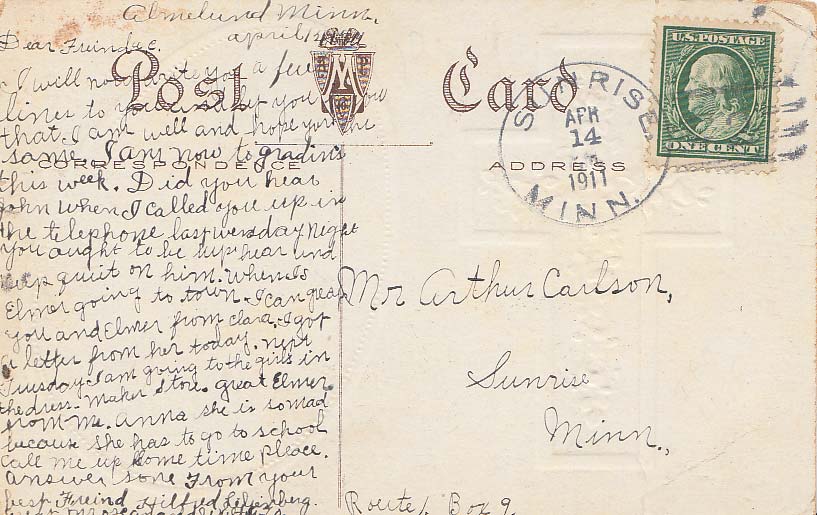 Almelund Minn.
april
Dear Freind C.
I will now write you a few
lines to you and let you now
that I am well and hope you the
same. I am now to gradins
this week. Did you hear
john when I called you up in
the telephone last wensday night
you ought to be up hear und
keep quiit on him. When Is
Elmer going to town. I can great
you and Elmer from Clara, I got
a letter from her today. next
Tuesday I am going to the girls in
the dress-maker store. great Elmer
from me. Anna she is so mad
because she has to go to school
Call me up some time pleace.
answer sone From your
best Freind Hilfred
Post Card
CORRESPONDENCE
ADDRESS
SUNRISE,
APR
14
1911
MINN.
U.S. POSTAGE
ONE CENT
Mr Arthur Carlson,
Sunrise
Minn.,
Route 1. Box 9.